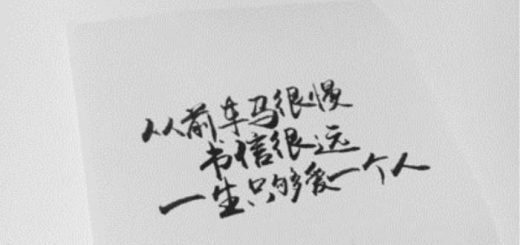 从前车马很慢
书信很远
一生只够爱一个人